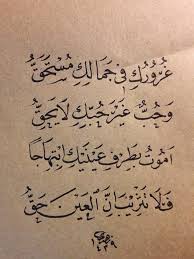 غُرُورُكِ فِي جَمَالِكِ مُسْتَحَقُّ
وَحُبٌّ غَيْرُ حُبِّكِ لَا يَحِقُّ
اَمُوتُ بِطَرْفِ عَيْنَيْكِ ابْتِهَاجًا
فَلَا تَثْرِيبَ اِنَّ الْعَيْنَ حَقُّ
١٤٣٩